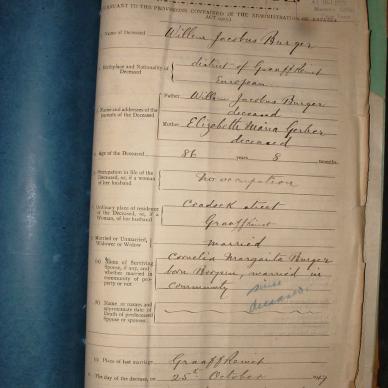 PURSUANT TO THE PROVISIONS CONTAINED IN THE ADMINISTRATION OF ESTATES
ACT
Name of Deceased Willem Jacobus Burger
Birthplace and Nationality of Deceased district of Graaff Reinet
European
Names and addresses of the parents of the Deceased
Father: Willem Jacobus Burger
deceased
Mother: Elizabeth Maria Gerber
deceased
Age of the Deceased 86 years 8 months.
Occupation in life of the Deceased, or, if a woman, of her husband no occupation
Ordinary place of residence of the Deceased, or, if a Woman, of her husband street
Graaff Reinet
Married or Unmarried, Widower or Widow married
(a) Name of Surviving Spouse, if any, and whether married in community of property or not
Cornelia Margarita Burger
born married in
community since
deceased
(b) Name or names and approximate date of Death of predeceased Spouse or spouses
(c) Place of last marriage Graaff Reinet
The day of the decease, on 25th October